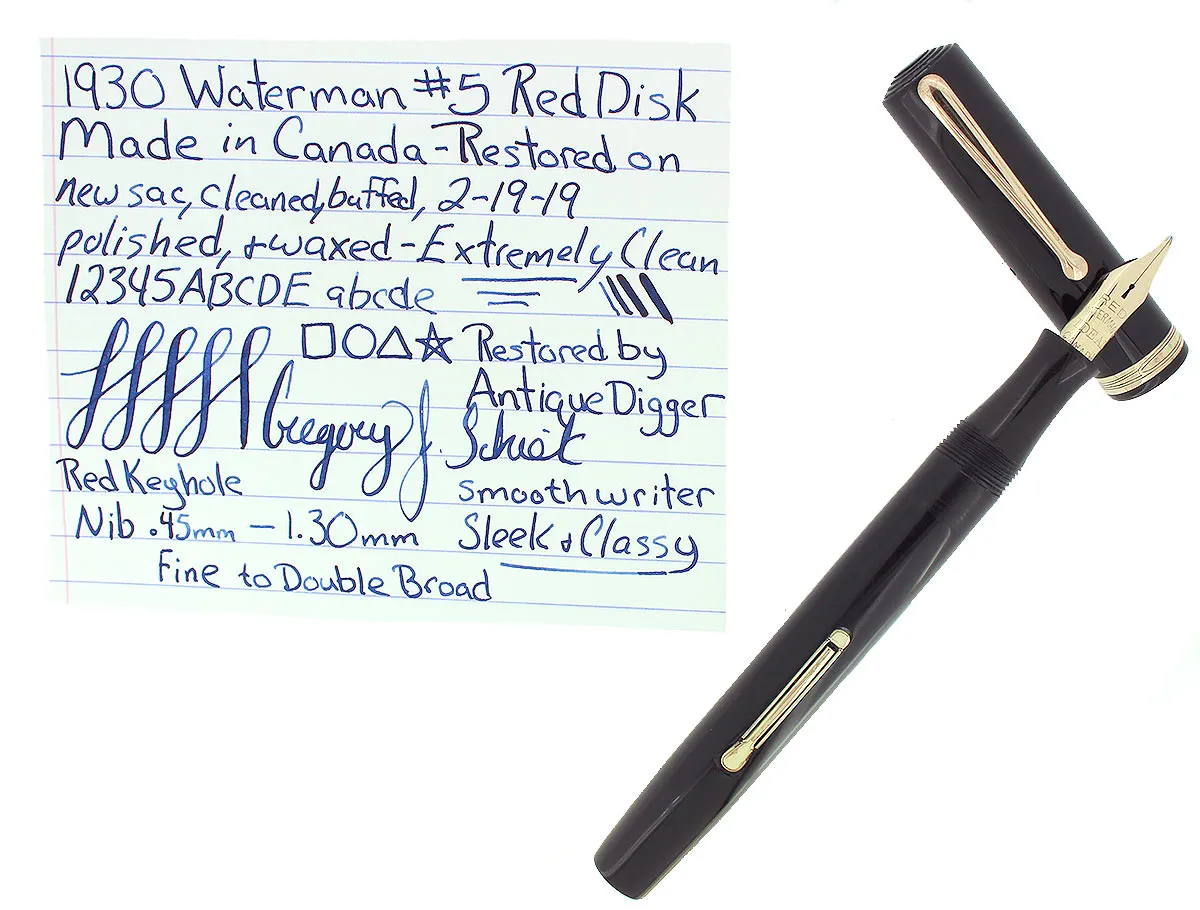 1930 Waterman #5 Red Disk
Made in Canada - Restored on
new sac, cleaned, buffed, 2-19-19
polished, + waxed - Extremely Clean
12345ABCDE abcde
Restored by
Antique Digger
Gregory J.
Red Keyhole
Nib .45mm - 1.30mm
Fine to Double Broad
smooth writer
Sleek + Classy
RED